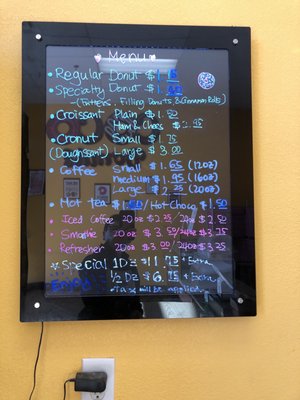 Menu
• Regular Donut $1.
• Specialty Donut $1.
(Fritters, Filling Donuts, & Cinnamon Rolls)
• Croissant Plain $1.50
Ham & Chees $
• Cronut Small $1.75
(Doughssant) Large $3.00
• Coffee Small $1.65 (12oz)
medium $1.95 (16oz)
Large $2.25 (20oz)
• Hot tea $1. / Hot Choco $1.50
• Iced Coffee 20oz $2.25 / 24oz $2.50
• Smoothie 20oz $3. /24oz $3.75
• Refresher 20oz $3.00 /24oz $3.25
Special 1DZ $11.75 + Extra
1/2 DZ $6.75 + Extra
Enjoy
Tax will be applied.